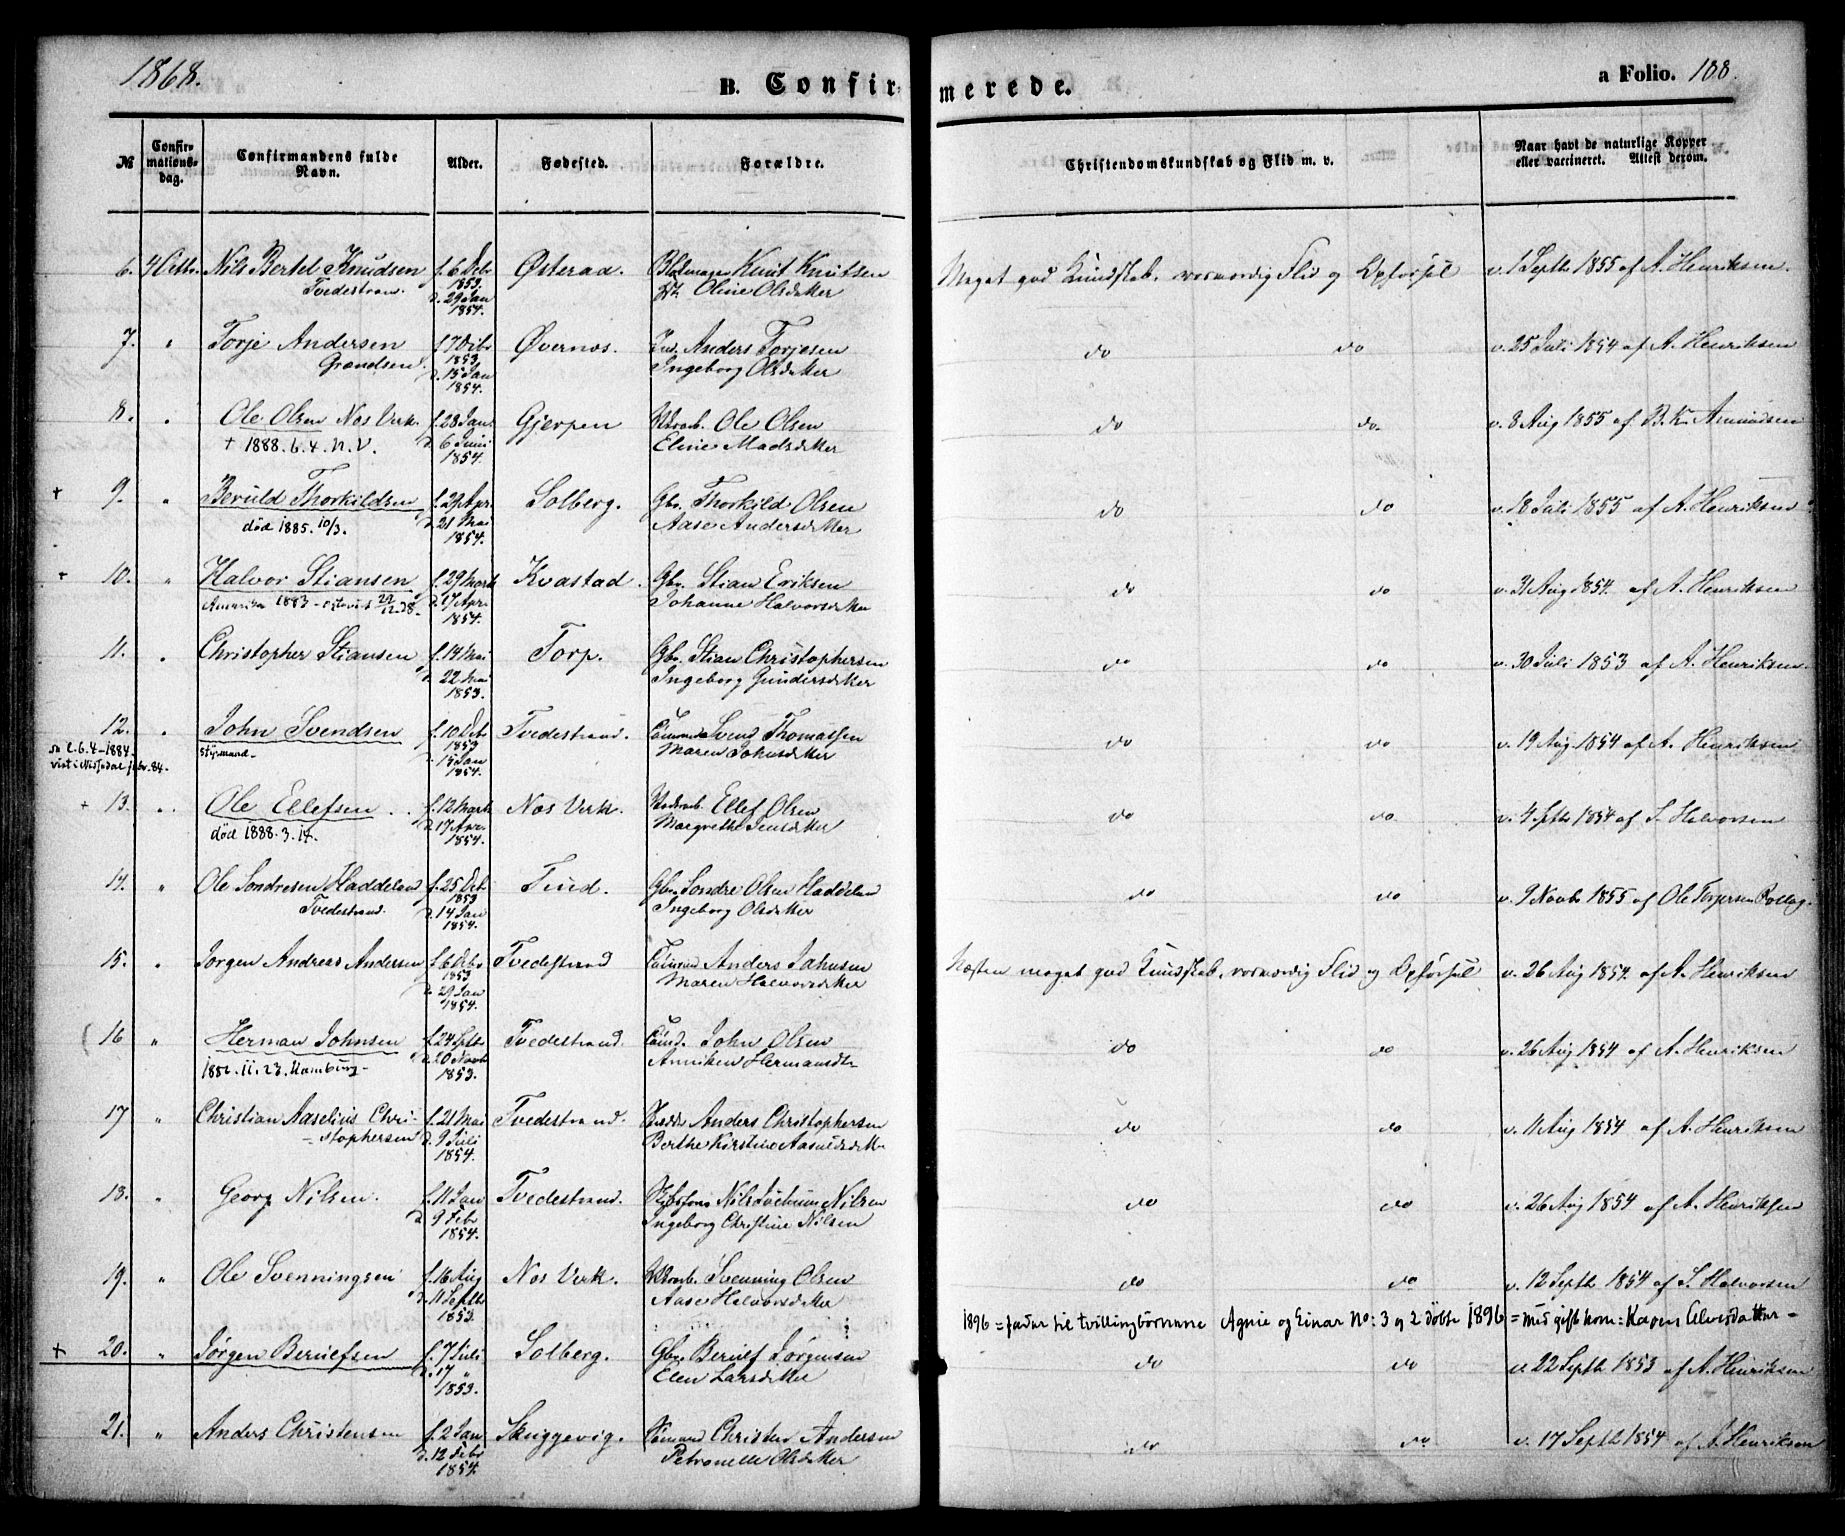 1868.
B. Confirmerede.
a Folio. 188.
№
Confirmationsdag.
Confirmandens fulde Navn.
Alder.
Fødested.
Forældre.
Christendomskundskab og Flid m. v.
Naar havt de naturlige Kopper eller vaccineret. Attest derom.
6. 4 Octbr. Nils Bertel Knudsen f. 6 Debr Østeraa. Knut Knutsen Meget god Kundskab, Flid og Opførsel v. 1 Septb 1855 af A. Henriksen.
Tvedestran. 1853. Oline Olsdatter
d. 29 Jan
1854.
7. " Torje Andersen f. 7 Debr Øvernes. Anders Torjesen do do v. 25 Juli 1854 af A. Henriksen
Grændsen. 1853. Ingeborg Olsdatter
d. 15 Jan
1854.
8. " Ole Olsen Nes Verk. f. 28 Jan. Gjerpen Ole Olsen do do v. 8 Aug 1855 af B. K. Amundsen
† 1888. 6. 4. N. V. d. 6 Juni Eline Madsdatter
1854.
+ 9. " Beruld Thorkildsen f. 29 Apr. Solberg. Gbr. Thorkild Olsen do do v. 18 Juli 1855 af A. Henriksen
død 1885. 10/3. d. 21 Mai Aase Andersdatter
1854.
+ 10. " Halvor Stiansen f. 29 Marts Kvastad. Gbr. Stian Eriksen do do v. 31 Aug 1854. af A. Henriksen
Amerika 1883 d. 17 Apr. Johanne Halvorsdatter
1854.
11. " Christopher Stiansen f. 14 Mai Torp. Gbr. Stian Christophersen do do v. 30 Juli 1853 af A. Henriksen.
d. 22 Mai Ingeborg Gundersdatter
1853.
12. " John Svendsen f. 10 Debr Tvedestrand. Svend Thomassen do do v. 19 Aug 1854 af A. Henriksen
6. 4 - 1884. styrmand. 1853 Maren Johnsdatter
84. d. 15 Jan
1854.
+ 13. " Ole Ellefsen f. 12 Marts Nes Verk. Ellef Olsen do do v. 4 Septb 1854 af S. Halvorsen
død 1888. 3. 14. d. 17 Apr. Margrethe Jensdatter
1854.
14. " Ole Sondresen Haddeland f. 25 Debr Tued. Gbr. Sondre Olsen Haddeland do do v. 9 Novb 1855 af Ole Torjersen Rollag.
Tvedestrand. 1853 Ingeborg Olsdatter
d. 14 Jan
1854.
15. " Jørgen Andreas Andersen f. 6 Debr Tvedestrand Anders Johnsen Næsten meget god Kundskab, Flid og Opførsel v. 26 Aug 1854. af A. Henriksen
1853 Maren Halvorsdatter
d. 29 Jan
1854.
16 " Herman Johnsen f. 24 Septb Tvedestrand. John Olsen do do v. 26 Aug 1854 af A. Henriksen
11. 23. Hamburg - d. 20 Novb Anniken Hermansdtr
1853.
17 " Christian Aaselius Chri- f. 21 Mai Tvedestrand. Anders Christophersen do do v. 11 Aug 1854 af A. Henriksen
- stophersen d. 9 Juli Berthe Kirstine
1854.
18. " Georg Nilsen. f. 11 Jan Tvedestrand. Nils Jochum Nilsen do do v. 26 Aug 1854 af A. Henriksen
d. 9 Febr Ingeborg Christine Nilsen
1854.
19. " Ole Svenningsen f. 16 Aug Nes Verk. Svenning Olsen do do v. 12 Septb 1854 af S. Halvorsen
d. 11 Septb Aase Halvorsdatter
1853. 1896 = fadur til tvillingbörnene Agnie og Einar No: 3 og 2 döbte 1896 = med gift kone: Karen Alvesdatter -
+ 20. " Jørgen Beruefsen f. 7 Juli Solberg. Gbr. Beruef Jørgensen do do v. 22 Septb 1853 af A. Henriksen
d. 17 " Elen Larsdatter
1853.
21. " Anders Christensen f. 2 Jan Skuggevig. Christen Andersen do do v. 17 Septb 1854 af A. Henriksen
d. 12 Febr Petronelle Olsdatter
1854.